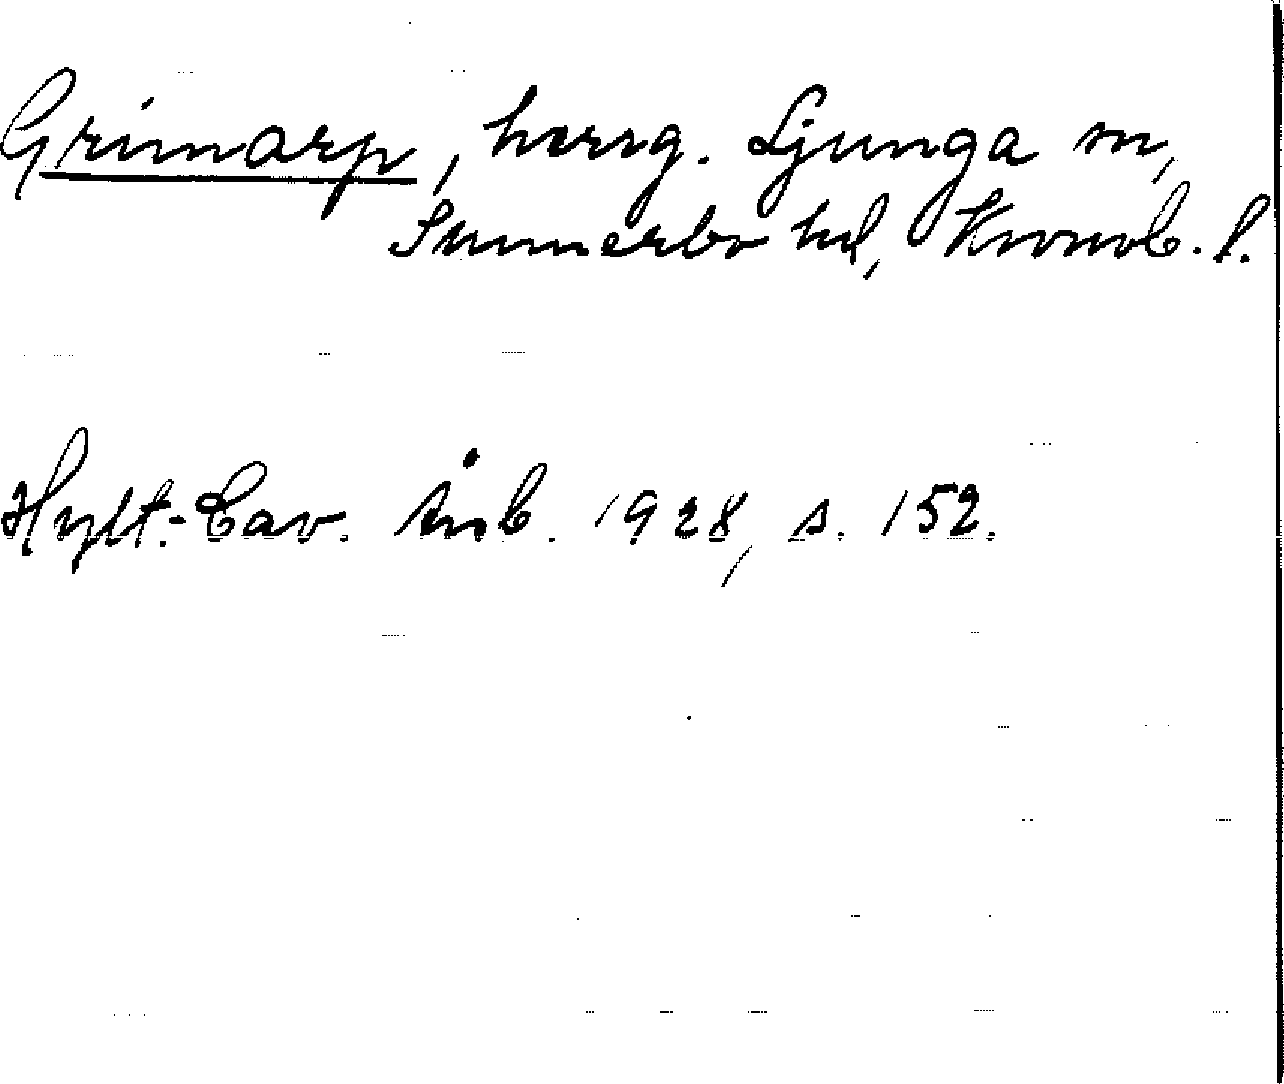 Grimarp, herrg. Ljunga sn,
Sunnerbo hd, Kronob. l.
Hylt.-Cav. Årsb. 1928, s. 152.